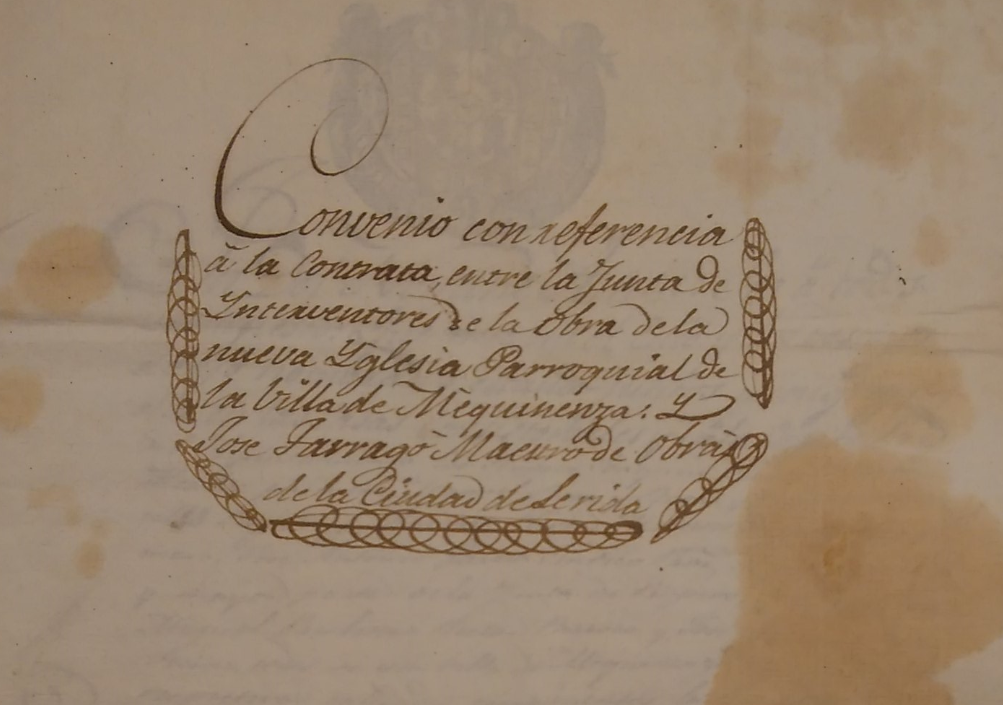 Convenio con referencia
à la Contrata, entre la Junta de
Ynterventores de la Obra de la
nueva Yglesia Parroquial de
la Villa de Mequinenza: Y
Jose Tarragò Maestro de Obras
de la Ciudad de Lerida